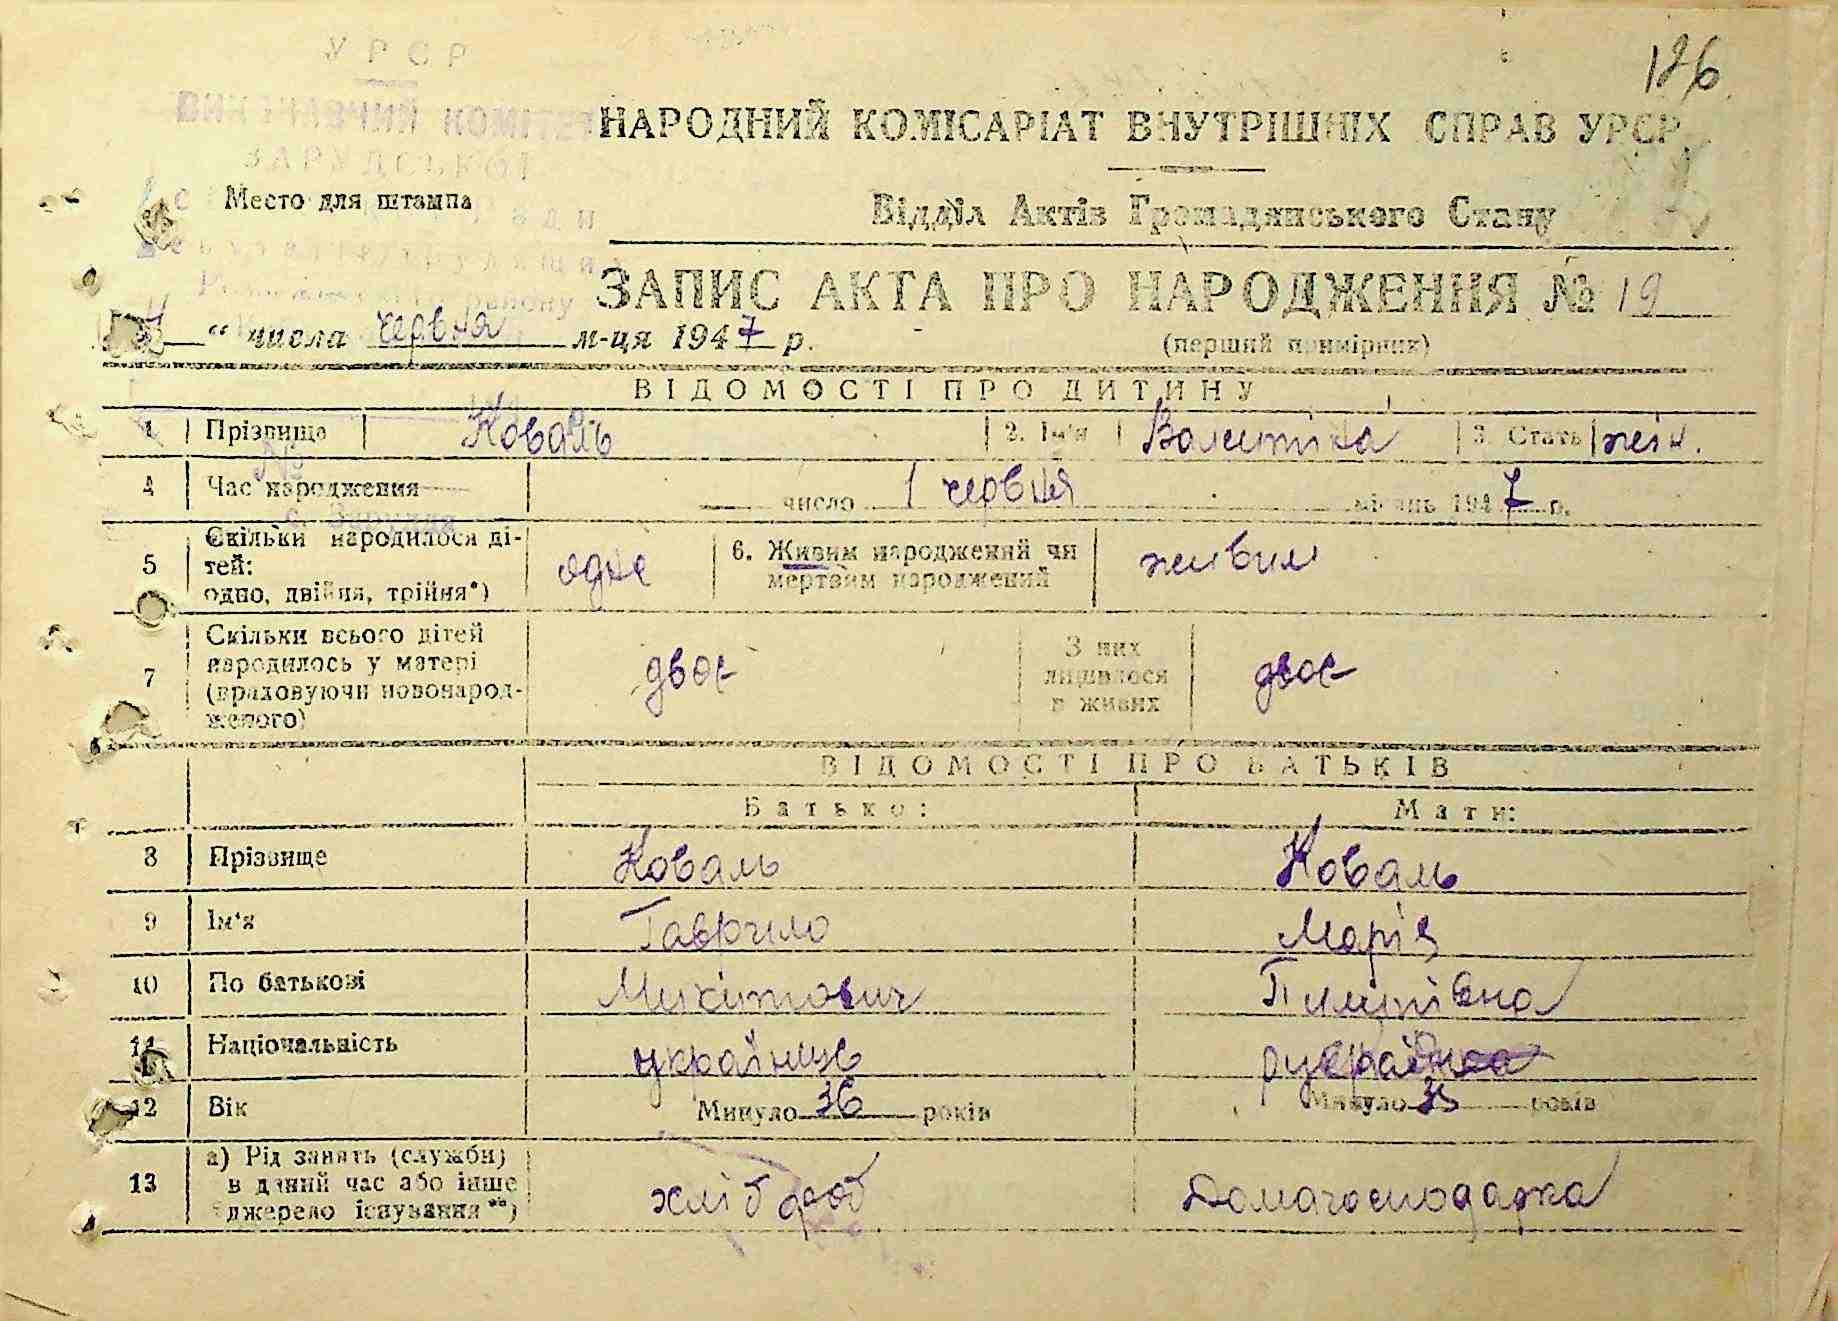 126
УРСР
ВИКОНАВЧИЙ КОМІТЕТ
ЗАРУДСЬКОЇ
Ради
району
НАРОДНИЙ КОМІСАРІАТ ВНУТРІШНІХ СПРАВ УРСР
Место для штампа
Відділ Актів Громадянського Стану
ЗАПИС АКТА ПРО НАРОДЖЕННЯ № 19
(перший примірник)
“ числа червня м-ця 1947 р.
ВІДОМОСТІ ПРО ДИТИНУ
1 Прізвище Коваль 2. Ім'я Валентіна 3. Стать жін.
№
4 Час народження число 1 червня місяць 1947 р.
с. Зарудля
5 Скільки народилося дітей: одно, двійня, трійня*) одне 6. Живим народжений чи мертвим народжений живим
7 Скільки всього дітей народилось у матері (враховуючи новонародженого) двоє З них лишилося в живих двоє
ВІДОМОСТІ ПРО БАТЬКІВ
Батько: Мати:
8 Прізвище Коваль Коваль
9 Ім'я Гаврило Марія
10 По батькові Микітович Пилипівна
11 Національність українець українка
12 Вік Минуло 36 років Минуло років
13 а) Рід занять (служби) в даний час або інше джерело існування**) хлібороб Домагосподарка